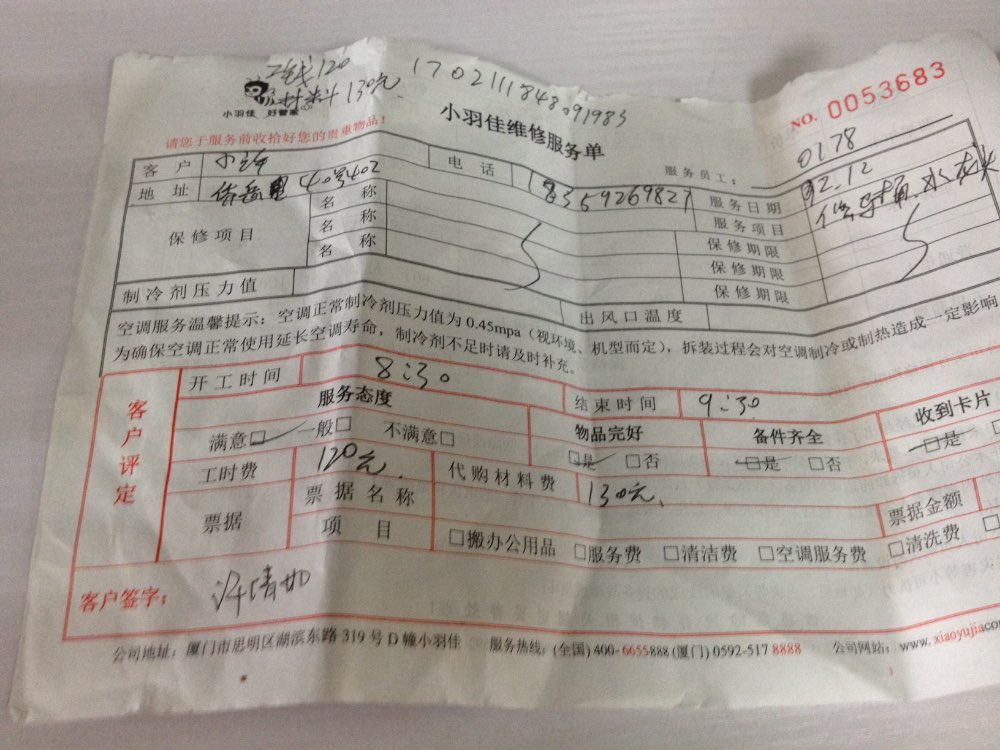 工钱120
材料130元
1702111848091983
小羽佳 好管家
NO. 0053683
请您于服务前收拾好您的贵重物品!
小羽佳维修服务单
服务员工: 0178
客 户 小许 电 话 18359269827 服务日期 02.12
地 址 40号402 服务项目 水龙头
保修项目 名 称 保修期限
名 称 保修期限
名 称 保修期限
制冷剂压力值 出风口温度
空调服务温馨提示:空调正常制冷剂压力值为0.45mpa(视环境、机型而定),拆装过程会对空调制冷或制热造成一定影响
为确保空调正常使用延长空调寿命,制冷剂不足时请及时补充。
客户评定
开工时间 8:30 结束时间 9:30
服务态度 物品完好 备件齐全 收到卡片
满意□ 一般□ 不满意□ □是 □否 □是 □否 □是
工时费 120元 代购材料费 130元
票据 票据名称 票据金额
项 目 □搬办公用品 □服务费 □清洁费 □空调服务费 □清洗费
客户签字: 许清如
公司地址:厦门市思明区湖滨东路319号D幢小羽佳 服务热线:(全国)400-6655888(厦门)0592-5178888 公司网站:www.xiaoyujia.co